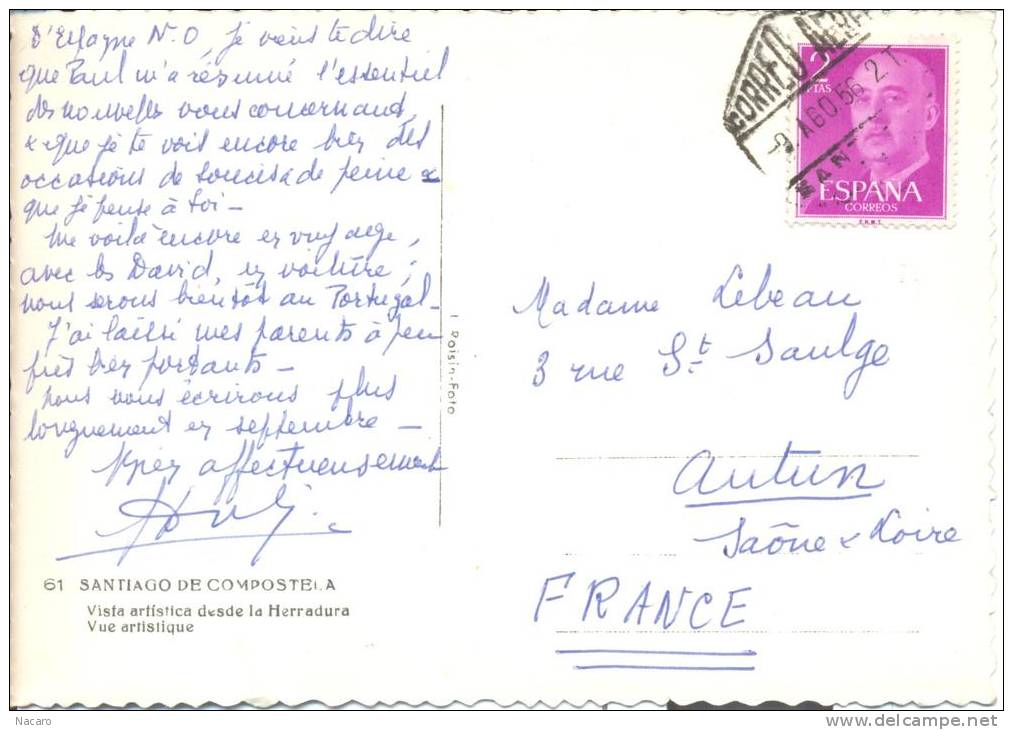 d'Espagne N.O, je viens te dire
que Paul m'a résumé l'essentiel
des nouvelles vous concernant,
& que je te vois encore bien des
occasions de soucis & de peine &
que je pense à toi –
Me voilà encore en voyage,
avec les David, en voiture ;
nous serons bientôt au Portugal –
J'ai laissé mes parents à peu
près bien portants –
nous vous écrirons plus
longuement en septembre –
bien affectueusement
61 SANTIAGO DE COMPOSTELA
Vista artística desde la Herradura
Vue artistique
L. Roisin-Foto
CORREO AEREO
AGO.56 2.T.
SANT
2
PTAS
ESPAÑA
CORREOS
F.N.M.T.
Madame Lebeau
3 rue St Saulge
Autun
Saône & Loire
FRANCE
Nacaro
www.delcampe.net